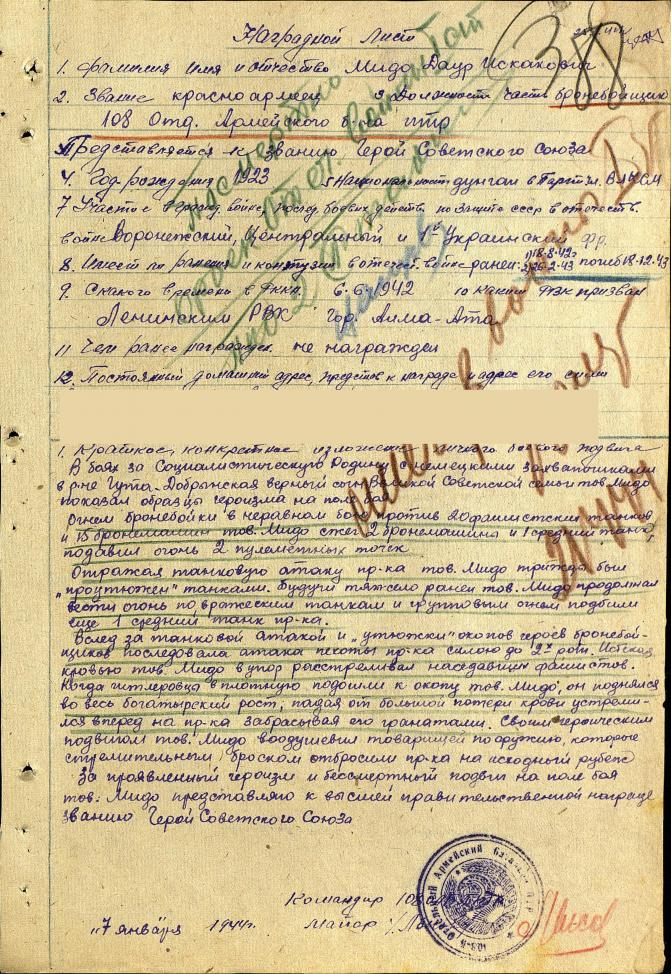 Наградной Лист
388
1. Фамилия имя и отчество Мидо Даур Искакович
2. Звание красноармеец 3 Должность часть бронебойщик
108 Отд. Армейского б-на птр
Представляется к званию Герой Советского Союза
4. Год рождения 1923 5 Национальность дунган 6 Партийн. ВЛКСМ
7 Участие в гражд. войне, послед. боевых действ. по защите СССР в отечеств.
войне Воронежский, Центральный и 1й Украинский фр.
8. Имеет ли ранения и контузии в отечеств. войне ранен: 1) 18-8-42г. 2) 26-2-43 погиб 18-12-43
9. С какого времени в РККА 6-6-1942 10 каким РВК призван
Ленинским РВК гор. Алма-Ата
11 Чем ранее награжден не награжден
12. Постоянный домашний адрес, представ. к награде и адрес его семьи
1. Краткое, конкретное изложение личного боевого подвига
В боях за Социалистическую Родину с немецкими захватчиками
в р-не Гута-Добрынская верный сын Великой Советской семьи тов Мидо
показал образцы героизма на поле боя.
Огнем бронебойки в неравном бою против 20 фашистских танков
и 15 бронемашин тов. Мидо сжег 2 бронемашины и 1 средний танк,
подавил огонь 2 пулеметных точек
Отражая танковую атаку пр-ка тов. Мидо трижды был
"проутюжен" танками. Будучи тяжело ранен тов. Мидо продолжал
вести огонь по вражеским танкам и групповым огнем подбили
еще 1 средний танк пр-ка.
Вслед за танковой атакой и "утюжки" окопов героев бронебой-
щиков последовала атака пехоты пр-ка силою до 2х рот. Истекая
кровью тов. Мидо в упор расстреливал наседавших фашистов.
Когда гитлеровцы вплотную подошли к окопу тов. Мидо, он поднялся
во весь богатырский рост, падая от большой потери крови устреми-
лся вперед на пр-ка забрасывая его гранатами. Своим героическим
подвигом тов. Мидо воодушевил товарищей по оружию, которые
стремительным броском отбросили пр-ка на исходный рубеж
За проявленный героизм и бессмертный подвиг на поле боя
тов. Мидо представляю к высшей правительственной награде
званию Герой Советского Союза
Командир
Майор
"7 января 1944г.
Отдельный Армейский